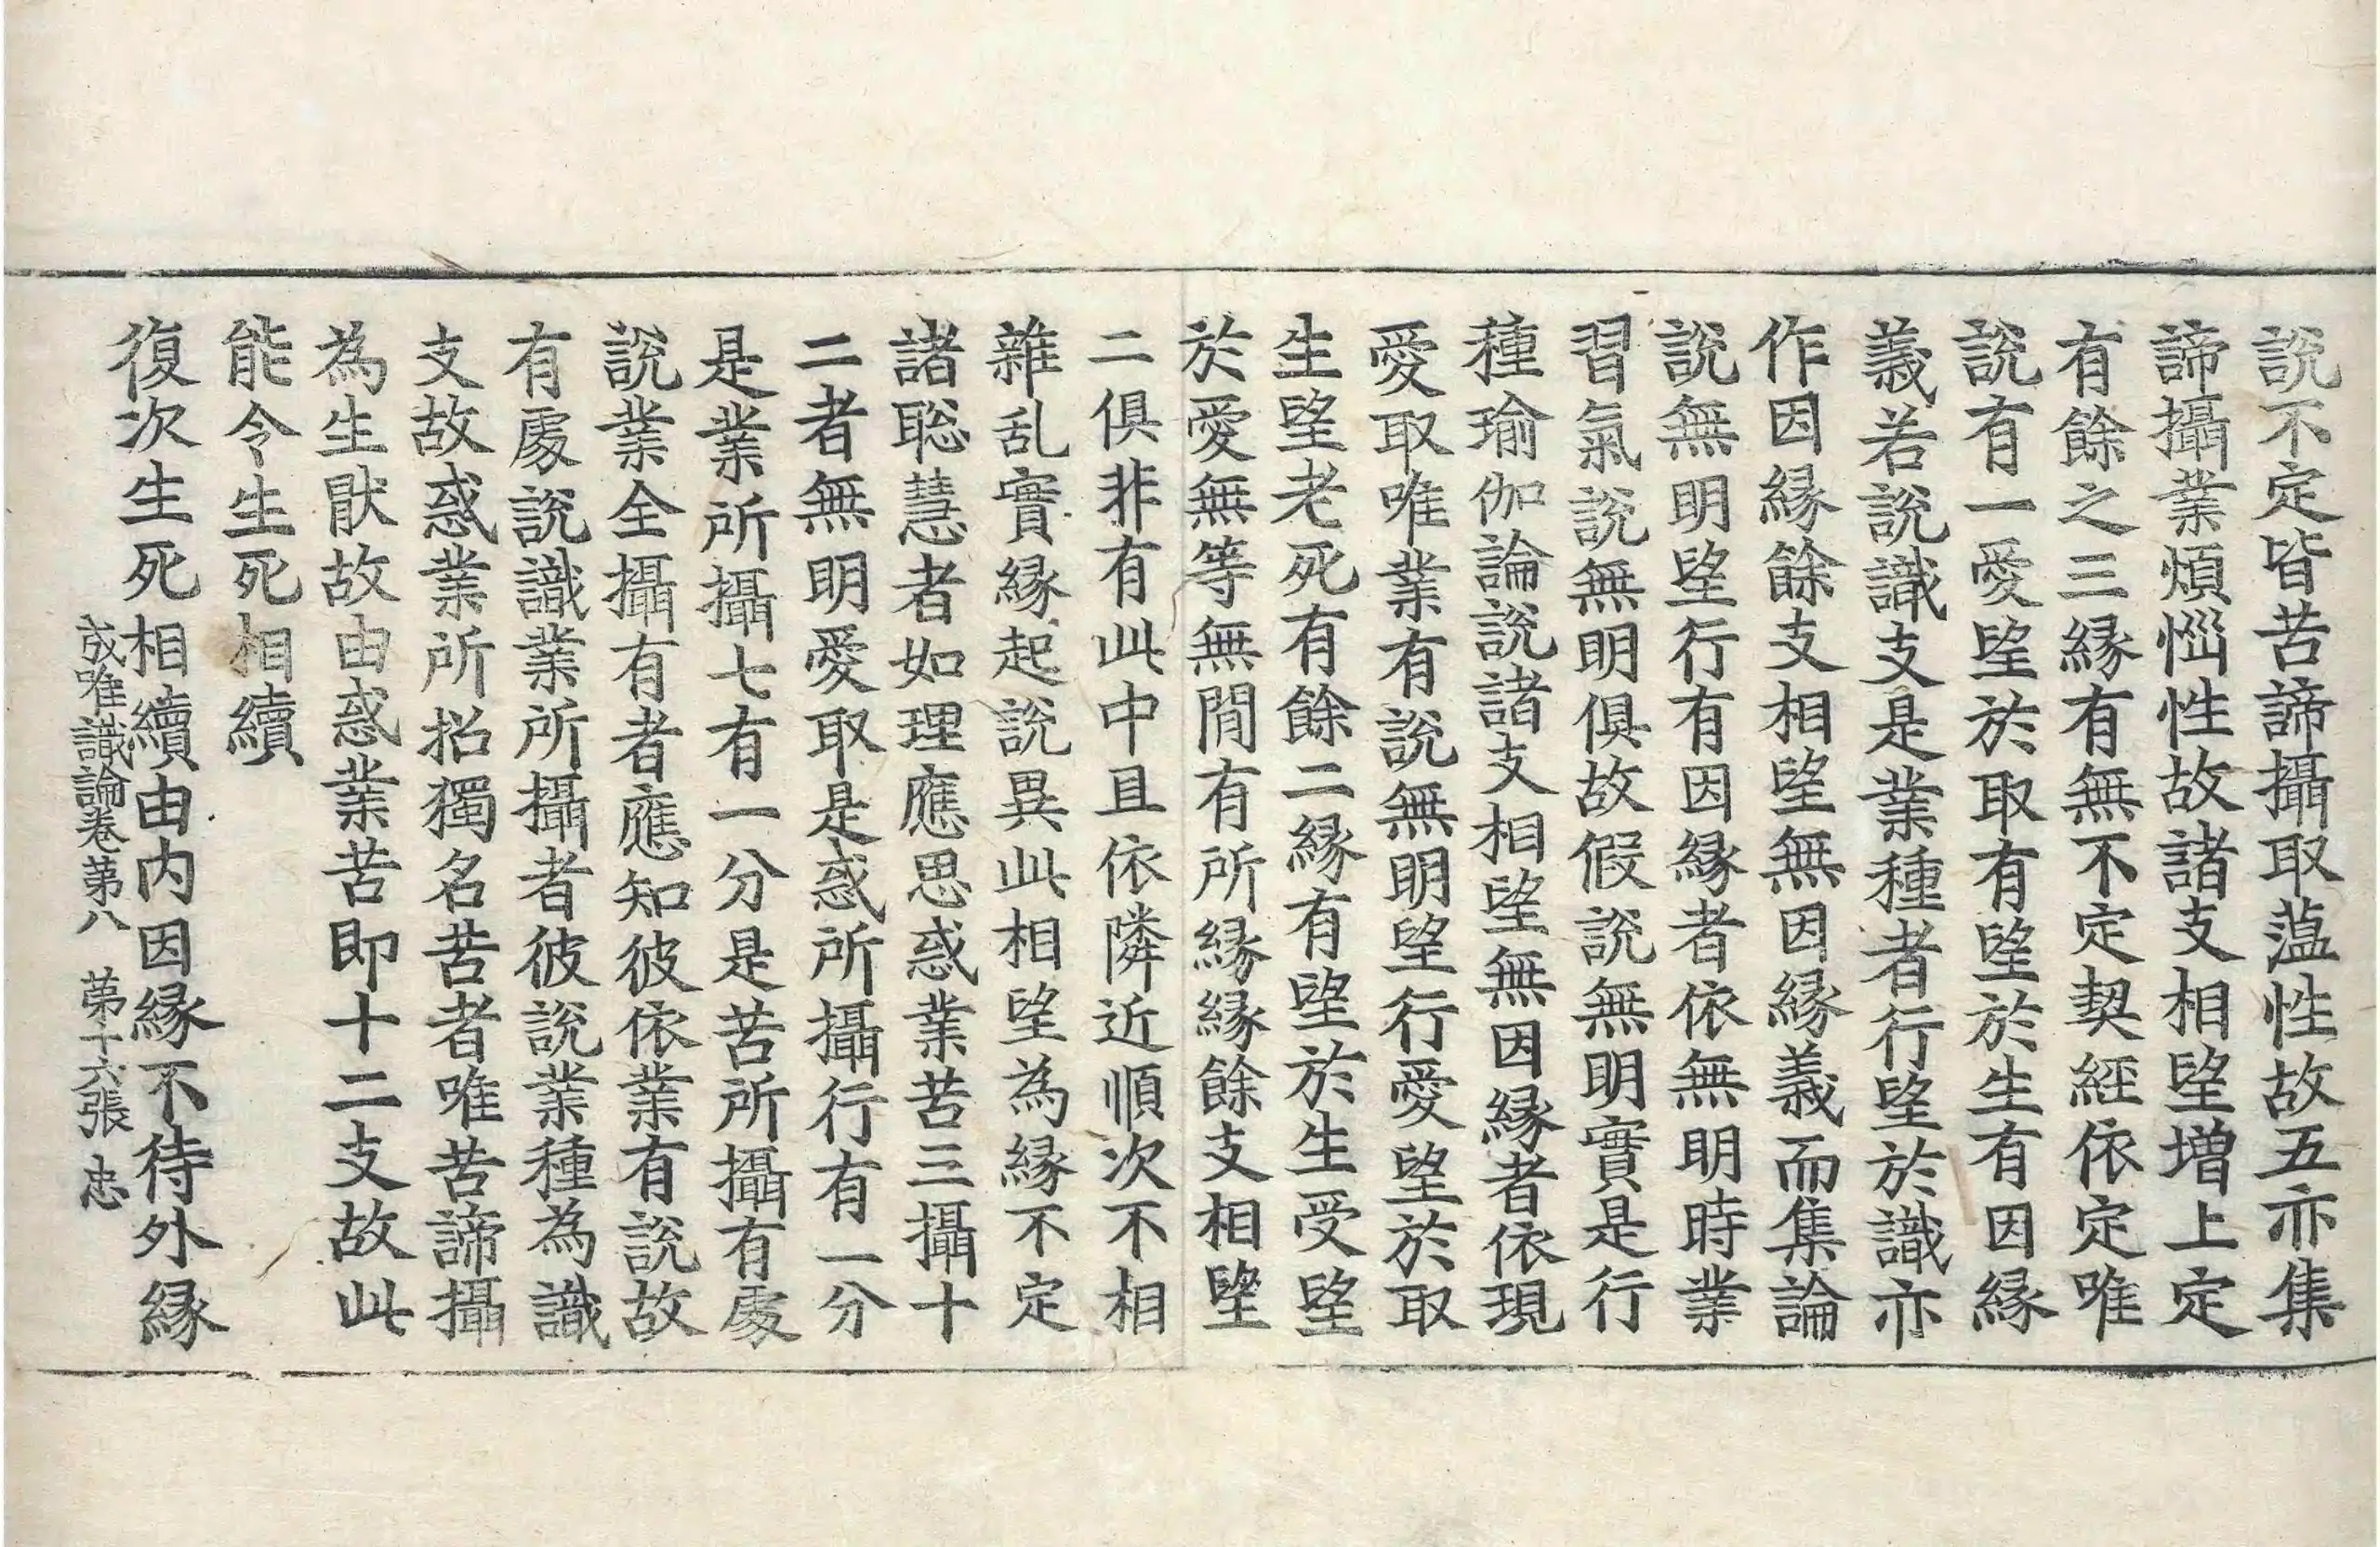 説不定皆苦諦攝取蕰性故五亦集
諦攝業煩惱性故諸支相望増上定
有餘之三縁有無不定契經依定唯
説有一愛望於取有望於生有因縁
義若説識支是業種者行望於識亦
作因縁餘支相望無因縁義而集論
説無明望行有因縁者依無明時業
習氣説無明俱故假説無明實是行
種瑜伽論説諸支相望無因縁者依現
愛取唯業有説無明望行愛望於取
生望老死有餘二縁有望於生受望
於愛無等無間有所縁縁餘支相望
二俱非有此中且依隣近順次不相
雜乱實縁起説異此相望為縁不定
諸聡慧者如理應思惑業苦三攝十
二者無明愛取是惑所攝行有一分
是業所攝七有一分是苦所攝有處
説業全攝有者應知彼依業有説故
有處説識業所攝者彼説業種為識
支故惑業所招獨名苦者唯苦諦攝
為生猒故由惑業苦即十二支故此
能令生死相續
復次生死相續由内因縁不待外縁
成唯識論卷第八 第十六張 忠